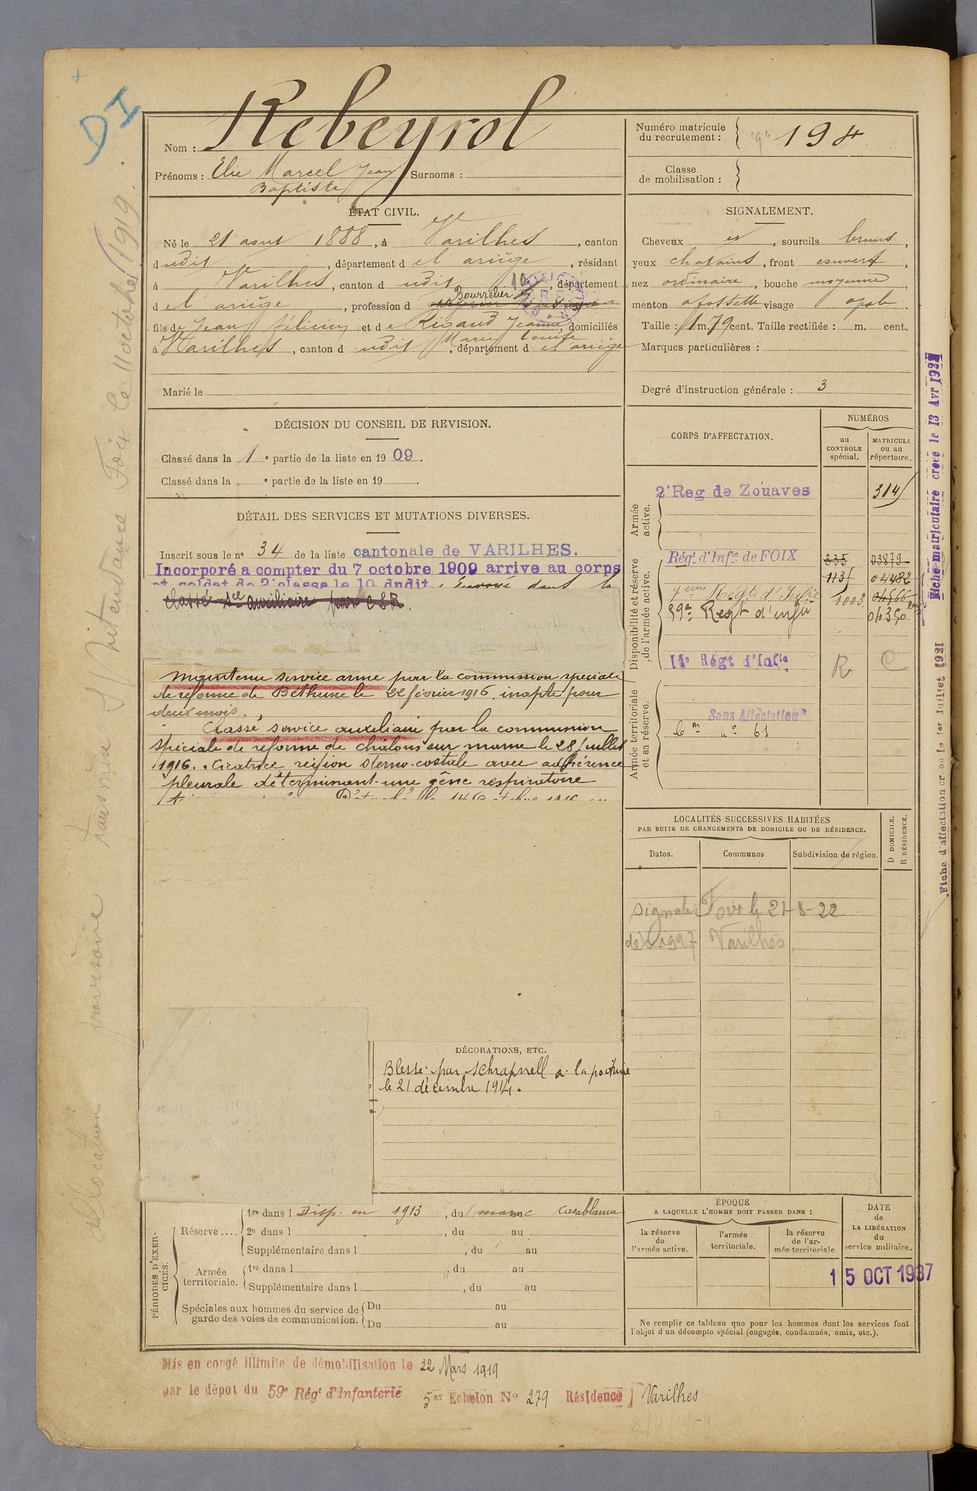 DI
Nom : Rebeyrol
Prénoms : Elie Marcel Jean Surnoms :
Baptiste
Numéro matricule
du recrutement : 198
Classe
de mobilisation :
ÉTAT CIVIL.
Né le 21 aout 1888, à Varilhes, canton
dudit, département de l'ariège, résidant
à Varilhes, canton dudit, département
de l'ariège, profession d Bourrelier
fils de Jean Félicien et de Rigaud Jeanne, domiciliés
Marie Louise
à Varilhes, canton dudit, département de l'ariège
Marié le
SIGNALEMENT.
Cheveux et, sourcils bruns,
yeux chatains, front couvert,
nez ordinaire, bouche moyenne,
menton a fossette visage ovale
Taille : 1m. 79 cent. Taille rectifiée : m. cent.
Marques particulières :
Degré d'instruction générale : 3
DÉCISION DU CONSEIL DE REVISION.
Classé dans la 1e partie de la liste en 1909.
Classé dans la e partie de la liste en 19
DÉTAIL DES SERVICES ET MUTATIONS DIVERSES.
Inscrit sous le no 34 de la liste cantonale de VARILHES.
Incorporé a compter du 7 octobre 1909 arrive au corps
et soldat de 2e classe le 10 dudit. Envoyé dans la
classé Sce auxiliaire par CSR
Maintenu service armé par la commission spéciale
de réforme de Béthune le 22 février 1916, inapte pour
deux mois.
Classé service auxiliaire par la commission
spéciale de réforme de châlons sur marne le 28 juillet
1916. Cicatrice région sterno-costale avec adhérence
pleurale déterminant une gêne respiratoire
CORPS D'AFFECTATION.
NUMÉROS
au
CONTROLE
spécial.
MATRICULE
OU AU
répertoire.
Armée
active.
2e Reg de Zouaves 314
Disponibilité et réserve
de l'armée active.
Régt d'Infie de FOIX 235 03879
1131 04482
1003 04566
59e Regt d'infie 04350
14e Régt d'Infie R C
Armée territoriale
et sa réserve.
Sans Affectation
LOCALITÉS SUCCESSIVES HABITÉES
PAR SUITE DE CHANGEMENTS DE DOMICILE OU DE RÉSIDENCE.
Dates. Communes Subdivision de région.
D DOMICILE.
R RÉSIDENCE.
Signalé Foix le 21-8-22
1927 Varilhes
DÉCORATIONS, ETC.
Blessé par schrapnell a la poitrine
le 21 décembre 1914.
PÉRIODES D'EXERCICES.
Réserve.... 1re dans l Disp. en 1913, du Casablanca
2e dans l, du au
Supplémentaire dans l, du au
Armée
territoriale.
1re dans l, du au
Supplémentaire dans l, du au
Spéciales aux hommes du service de
garde des voies de communication.
Du au
Du au
ÉPOQUE
A LAQUELLE L'HOMME DOIT PASSER DANS :
la réserve
de
l'armée active.
l'armée
territoriale.
la réserve
de l'armée territoriale.
DATE
de
LA LIBÉRATION
du
service militaire.
15 OCT 1937
Ne remplir ce tableau que pour les hommes dont les services font
l'objet d'un décompte spécial (engagés, condamnés, omis, etc.).
Mis en congé illimité de démobilisation le 22 Mars 1919
par le dépôt du 59e Régt d'Infanterie 5e Echelon No 279 Résidence Varilhes
Fiche matriculaire créée le 13 Avr 1927
Fiche d'affectation créée le 1er Juillet 1921
Allocation provisoire transmise à l'Intendance Foix le 11 octobre 1919.